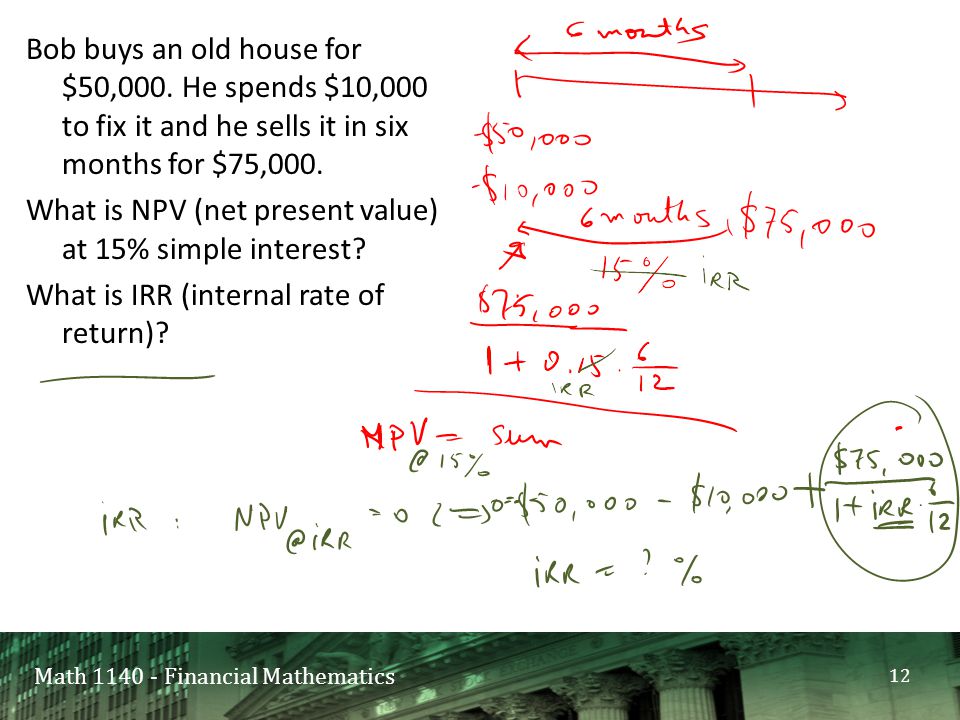 Bob buys an old house for
$50,000. He spends $10,000
to fix it and he sells it in six
months for $75,000.
What is NPV (net present value)
at 15% simple interest?
What is IRR (internal rate of
return)?
6 months
-$50,000
-$10,000
6 months $75,000
15% iRR
$75,000
1 + 0.15 · 6/12
iRR
NPV = Sum
@ 15%
iRR : NPV @iRR = 0 <=> 0 = -$50,000 - $10,000 + $75,000 / 1 + iRR · 6/12
iRR = ? %
Math 1140 - Financial Mathematics
12